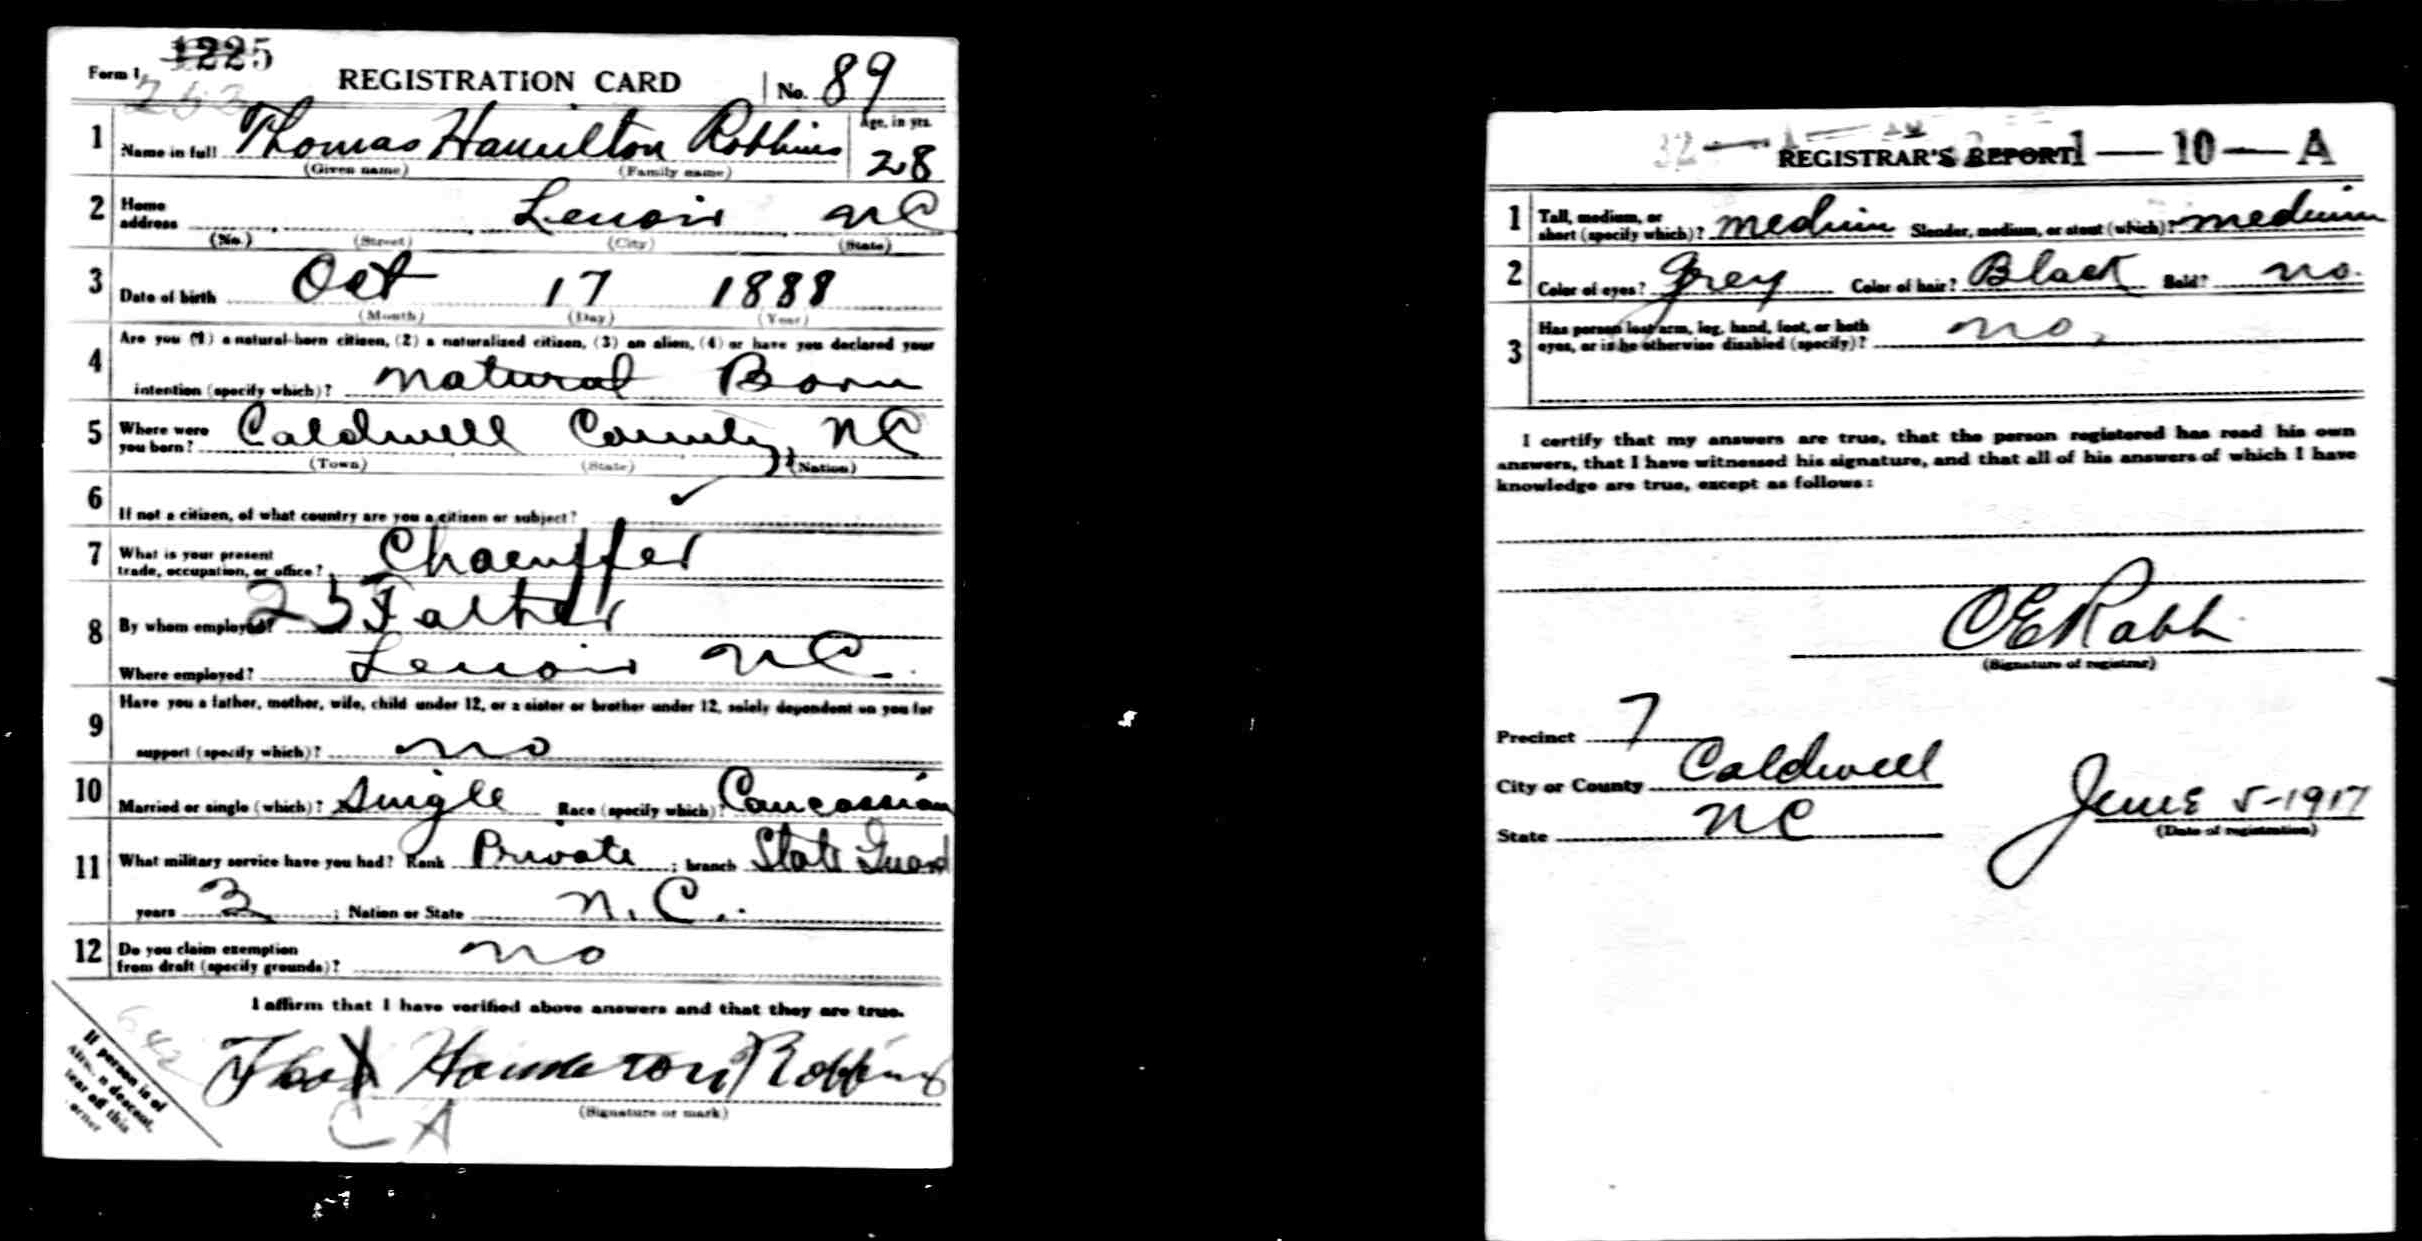 1225
Form 1
REGISTRATION CARD
No. 89
1 Name in full Thomas Hamilton Robbins
(Given name) (Family name)
Age, in yrs.
28
2 Home address Lenoir NC
(No.) (Street) (City) (State)
3 Date of birth Oct 17 1888
(Month) (Day) (Year)
4 Are you (1) a natural-born citizen, (2) a naturalized citizen, (3) an alien, (4) or have you declared your
intention (specify which)? natural Born
5 Where were you born? Caldwell County, NC
(Town) (State) (Nation)
6 If not a citizen, of what country are you a citizen or subject? ✓
7 What is your present trade, occupation, or office? Chaeuffer
25
8 By whom employed? Father
Where employed? Lenoir NC.
9 Have you a father, mother, wife, child under 12, or a sister or brother under 12, solely dependent on you for
support (specify which)? no
10 Married or single (which)? Single Race (specify which)? Caucassian
11 What military service have you had? Rank Private ; branch State Guard
years 3 ; Nation or State N.C.
12 Do you claim exemption from draft (specify grounds)? no
I affirm that I have verified above answers and that they are true.
Hamilton Robbins
(Signature or mark)
C A
If person is of
descent,
tear off this
corner
REGISTRAR'S REPORT
1—10—A
1 Tall, medium, or short (specify which)? medium Slender, medium, or stout (which)? medium
2 Color of eyes? Grey Color of hair? Black Bald? no.
3 Has person lost arm, leg, hand, foot, or both
eyes, or is he otherwise disabled (specify)? no,
I certify that my answers are true, that the person registered has read his own
answers, that I have witnessed his signature, and that all of his answers of which I have
knowledge are true, except as follows:
CE Rabb
(Signature of registrar)
Precinct 7
City or County Caldwell
State NC
June 5-1917
(Date of registration)